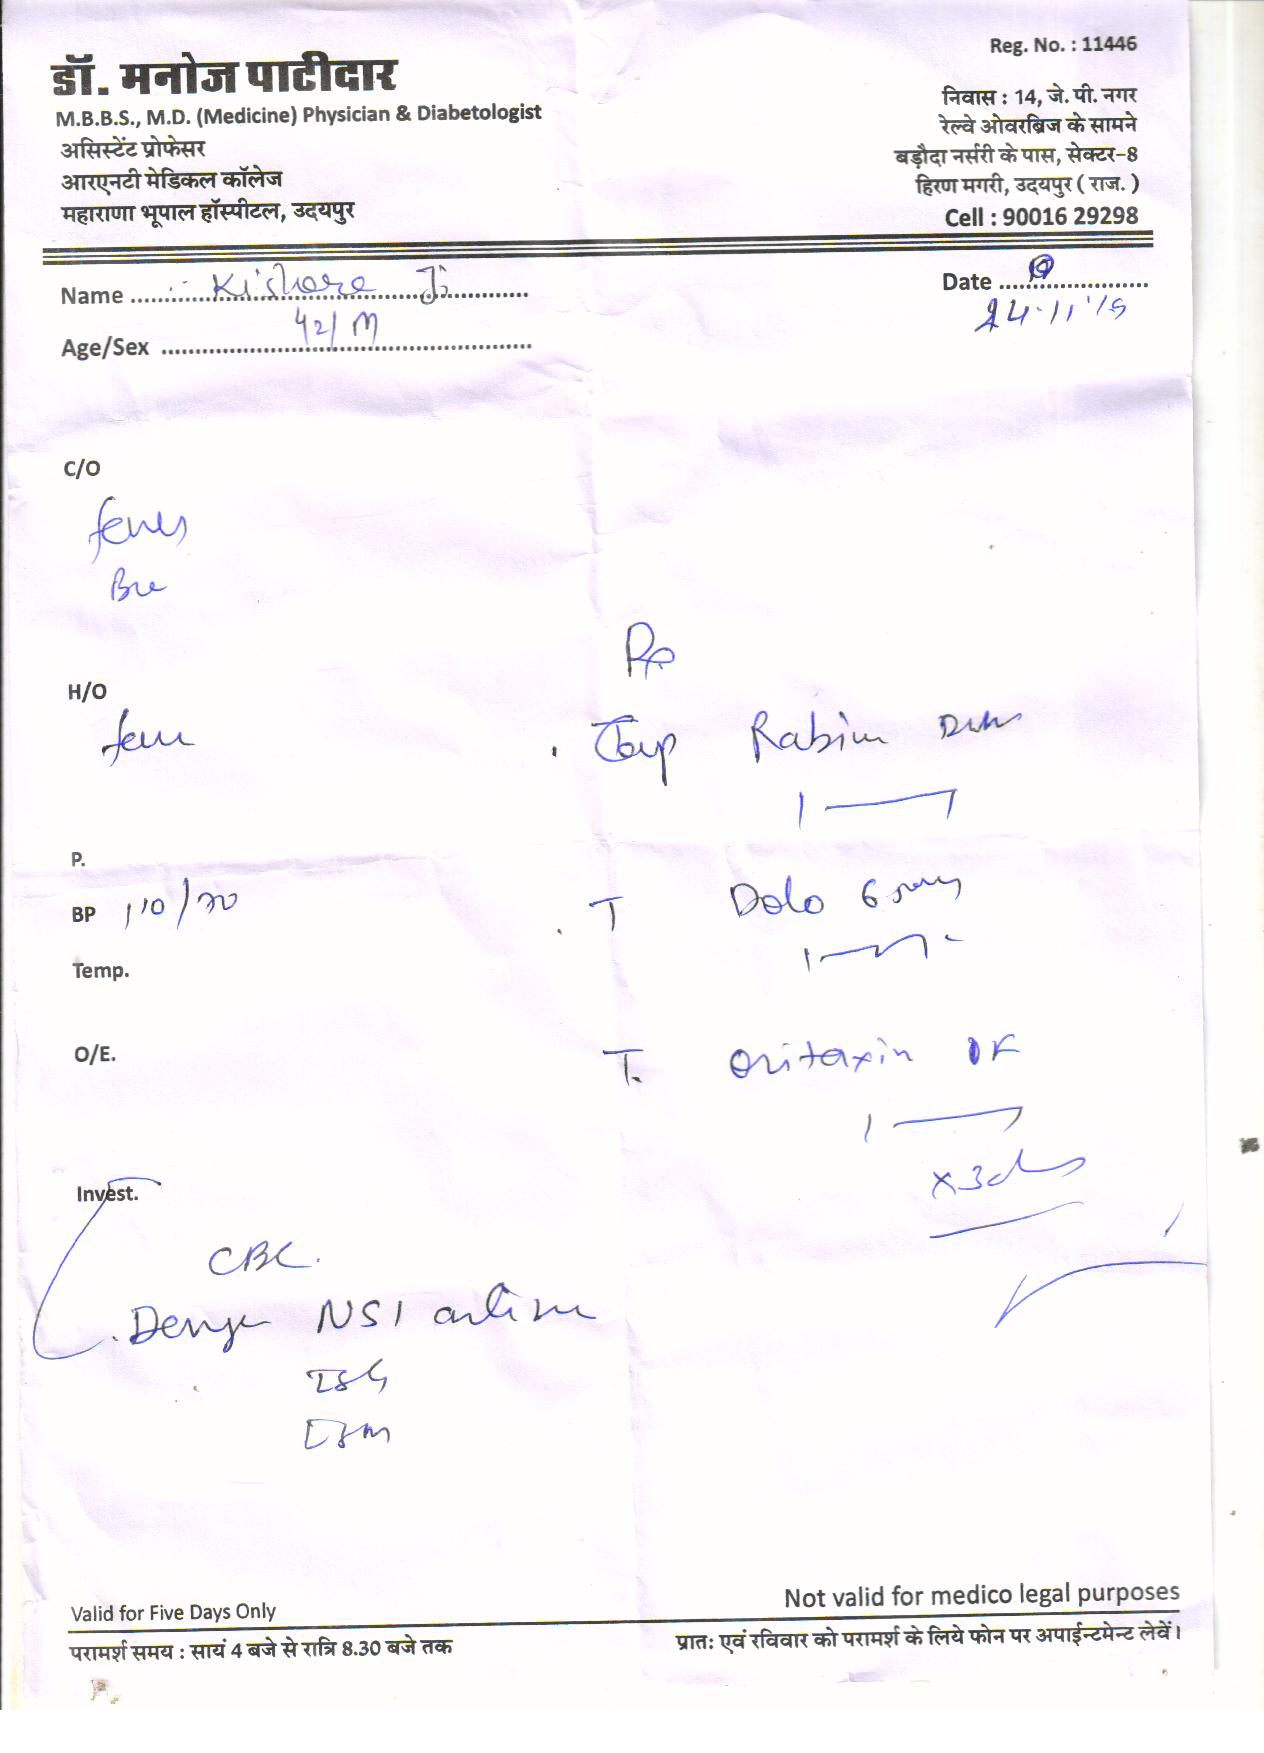 Reg. No. : 11446
डॉ. मनोज पाटीदार
M.B.B.S., M.D. (Medicine) Physician & Diabetologist
असिस्टेंट प्रोफेसर
आरएनटी मेडिकल कॉलेज
महाराणा भूपाल हॉस्पीटल, उदयपुर
निवास : 14, जे. पी. नगर
रेल्वे ओवरब्रिज के सामने
बड़ौदा नर्सरी के पास, सेक्टर-8
हिरण मगरी, उदयपुर ( राज. )
Cell : 90016 29298
Name Kishore Ji
Date
Age/Sex 42/M
C/O
fever
H/O
P.
BP 110/70
Temp.
O/E.
Invest.
T Dolo 650mg
T. Oritaxin
CBC.
Dengue NS1 antigen
IgG
IgM
Valid for Five Days Only
Not valid for medico legal purposes
परामर्श समय : सायं 4 बजे से रात्रि 8.30 बजे तक
प्रातः एवं रविवार को परामर्श के लिये फोन पर अपाईन्टमेन्ट लेवें।